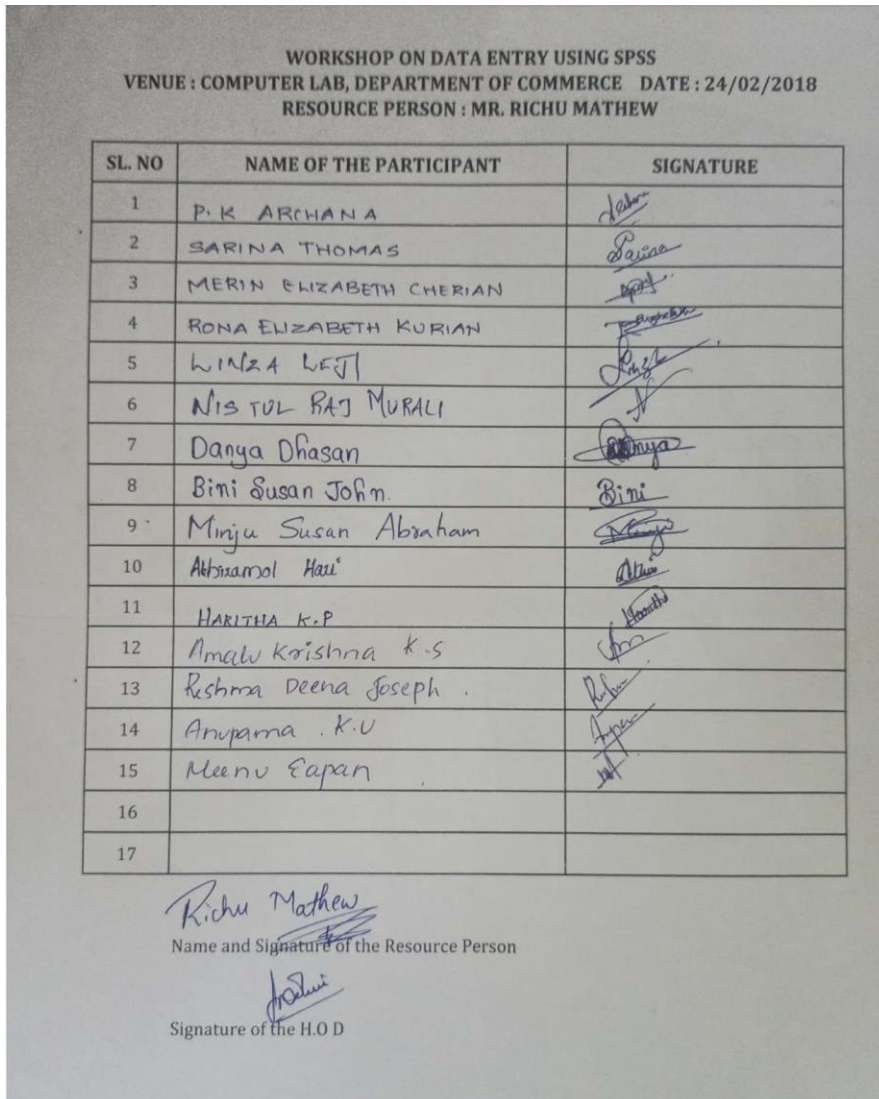 WORKSHOP ON DATA ENTRY USING SPSS
VENUE : COMPUTER LAB, DEPARTMENT OF COMMERCE DATE : 24/02/2018
RESOURCE PERSON : MR. RICHU MATHEW
SL. NO NAME OF THE PARTICIPANT SIGNATURE
1 P. K ARCHANA
2 SARINA THOMAS Sarina
3 MERIN ELIZABETH CHERIAN
4 RONA ELIZABETH KURIAN
5 LINZA LEJI
6 NISTUL RAJ MURALI
7 Danya Dhasan Danya
8 Bini Susan John. Bini
9 Minju Susan Abraham
10 Abhiramol Hari
11 HARITHA K.P Haritha
12 Amalu Krishna K.S
13 Reshma Deena Joseph .
14 Anupama . K.U
15 Meenu Eapan
16
17
Richu Mathew
Name and Signature of the Resource Person
Signature of the H.O D